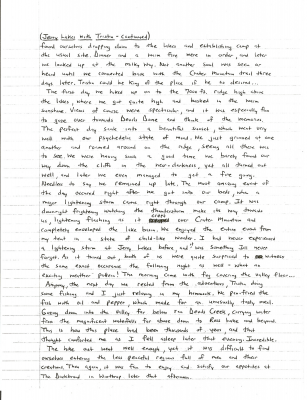 (Jerry Lakes with Trisha - Continued)
found ourselves dropping down to the lakes and establishing camp at
the usual site. Dinner and a warm fire were in order and later
we looked up at the Milky Way. Not another soul was seen or
heard until we connected back with the Crater Mountain trail three
days later. Trisha could be King of the place if he so desired...
The first day we hiked up on to the 7000 ft. ridge high above
the lakes, where we got quite high and basked in the warm
sunshine. Views of course were spectacular, and it was especially fun
to gaze over towards Devils Dome and think of the memories.
The perfect day sank into a beautiful sunset, which went very
well with our psychedelic state of mind. We just grinned at one
another and roamed around on the ridge, seeing all there was
to see. We were having such a good time we barely found our
way down the cliff in the near-darkness, yet all turned out
well, and later we even managed to get a fire going.
Needless to say we remained up late. The most amazing event of
the day occurred right after we got into our beds, when a
major lightning storm came right through our camp. It was
downright frightening watching the thunderstorm make its way towards
us, lightning flashing as it crept over Crater Mountain and
completely enveloped the lake basin. We enjoyed the entire event from
my tent in a state of child-like wonder. I had never experienced
a lightning storm at Jerry Lakes before, and was something I'll never
forget. As it turned out, both of us were quite surprised to witness
the same exact occurence the following night as well - what an
exciting weather pattern! The morning came with fog covering the valley floor...
Anyway, the next day we rested from the adventure, Trisha doing
some fishing and I just relaxing in my hammock. We pan-fried the
fish with oil and pepper, which made for an unusually tasty meal.
Gazing down into the valley far below
This is how this place had been thousands of years, and that
thought comforted me as I fell asleep later that evening. Incredible.
The hike out went well enough, yet it was difficult to find
ourselves entering the less peaceful regions full of men and their
creations. Then again, it was fun to enjoy and satisfy our appetites at
The Duckbrand in Winthrop later that afternoon.